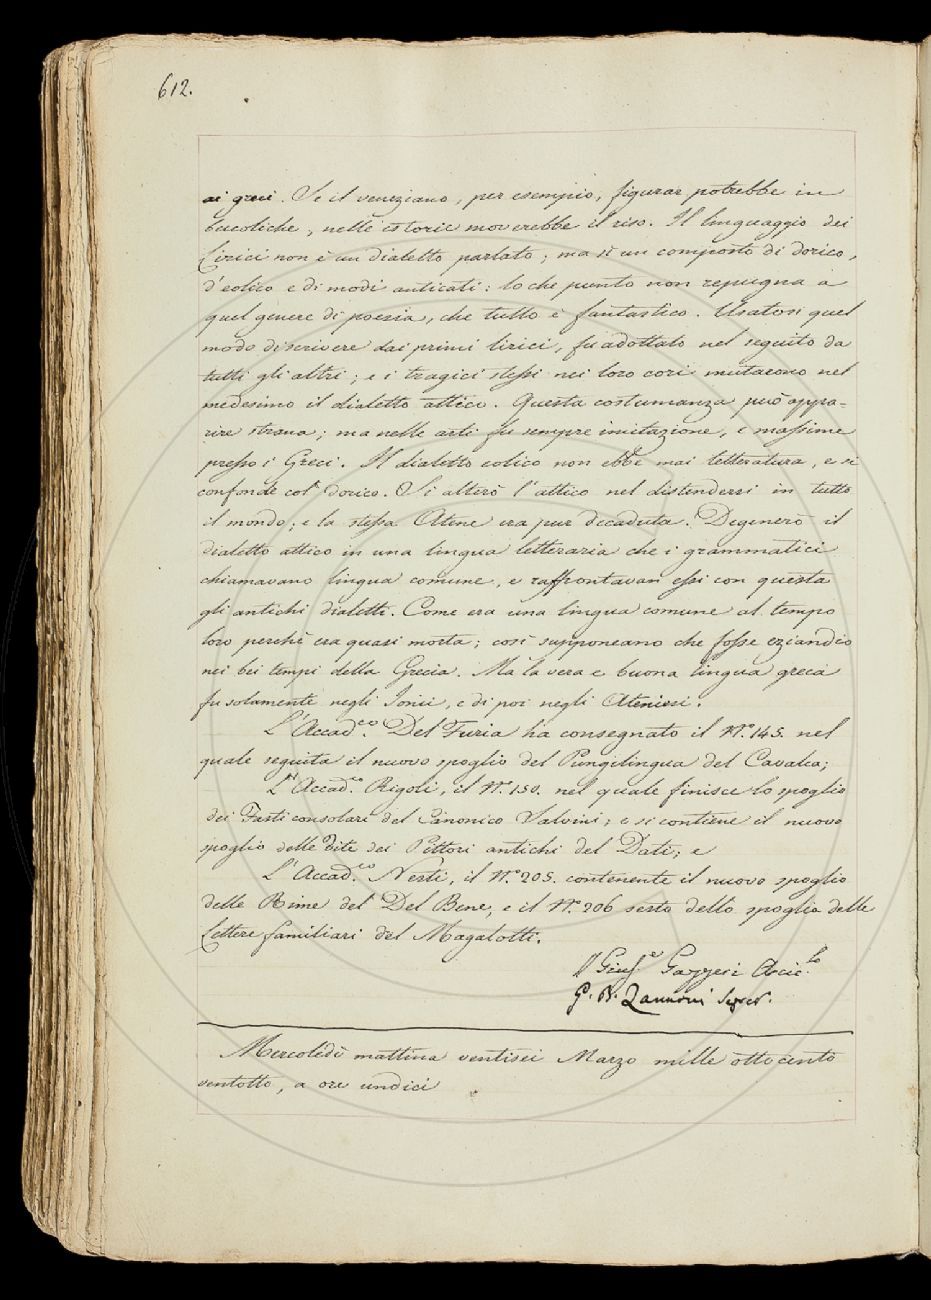 612.
ai greci. Se il veneziano, per esempio, figurar potrebbe in
bucoliche, nelle istorie moverebbe il riso. Il linguaggio dei
Lirici non è un dialetto parlato; ma sì un composto di dorico,
d'eolico e di modi anticati: lo che punto non repugna a
quel genere di poesia, che tutto è fantastico. Usatosi quel
modo di scrivere dai primi lirici, fu adottato nel seguito da
tutti gli altri; e i tragici stessi nei loro cori mutarono nel
medesimo il dialetto attico. Questa costumanza può appa-
rire strana; ma nelle arti fu sempre imitazione, e massime
presso i Greci. Il dialetto eolico non ebbe mai letteratura, e si
confonde col dorico. Si alterò l'attico nel distendersi in tutto
il mondo; e la stessa Atene era pur decaduta. Degenerò il
dialetto attico in una lingua letteraria che i grammatici
chiamavano lingua comune, e raffrontavan essi con questa
gli antichi dialetti. Come era una lingua comune al tempo
loro perchè era quasi morta; così supponeano che fosse eziandio
nei bei tempi della Grecia. Ma la vera e buona lingua greca
fu solamente negli Ionii, e di poi negli Ateniesi.
L'Accad.co Del Furia ha consegnato il N.o 145. nel
quale seguita il nuovo spoglio del Pungilingua del Cavalca;
L'Accad.co Rigoli, il N.o 150. nel quale finisce lo spoglio
dei Fasti consolari del Canonico Salvini; e si contiene il nuovo
spoglio delle Vite dei Pittori antichi del Dati; e
L'Accad.co Nesti, il N.o 205. contenente il nuovo spoglio
delle Rime del Del Bene, e il N.o 206 sesto dello spoglio delle
Lettere familiari del Magalotti.
Gius.e Gazzeri Arcic.lo
G. B. Zannoni Segret.
Mercoledì mattina ventisei Marzo mille ottocento
ventotto, a ore undici